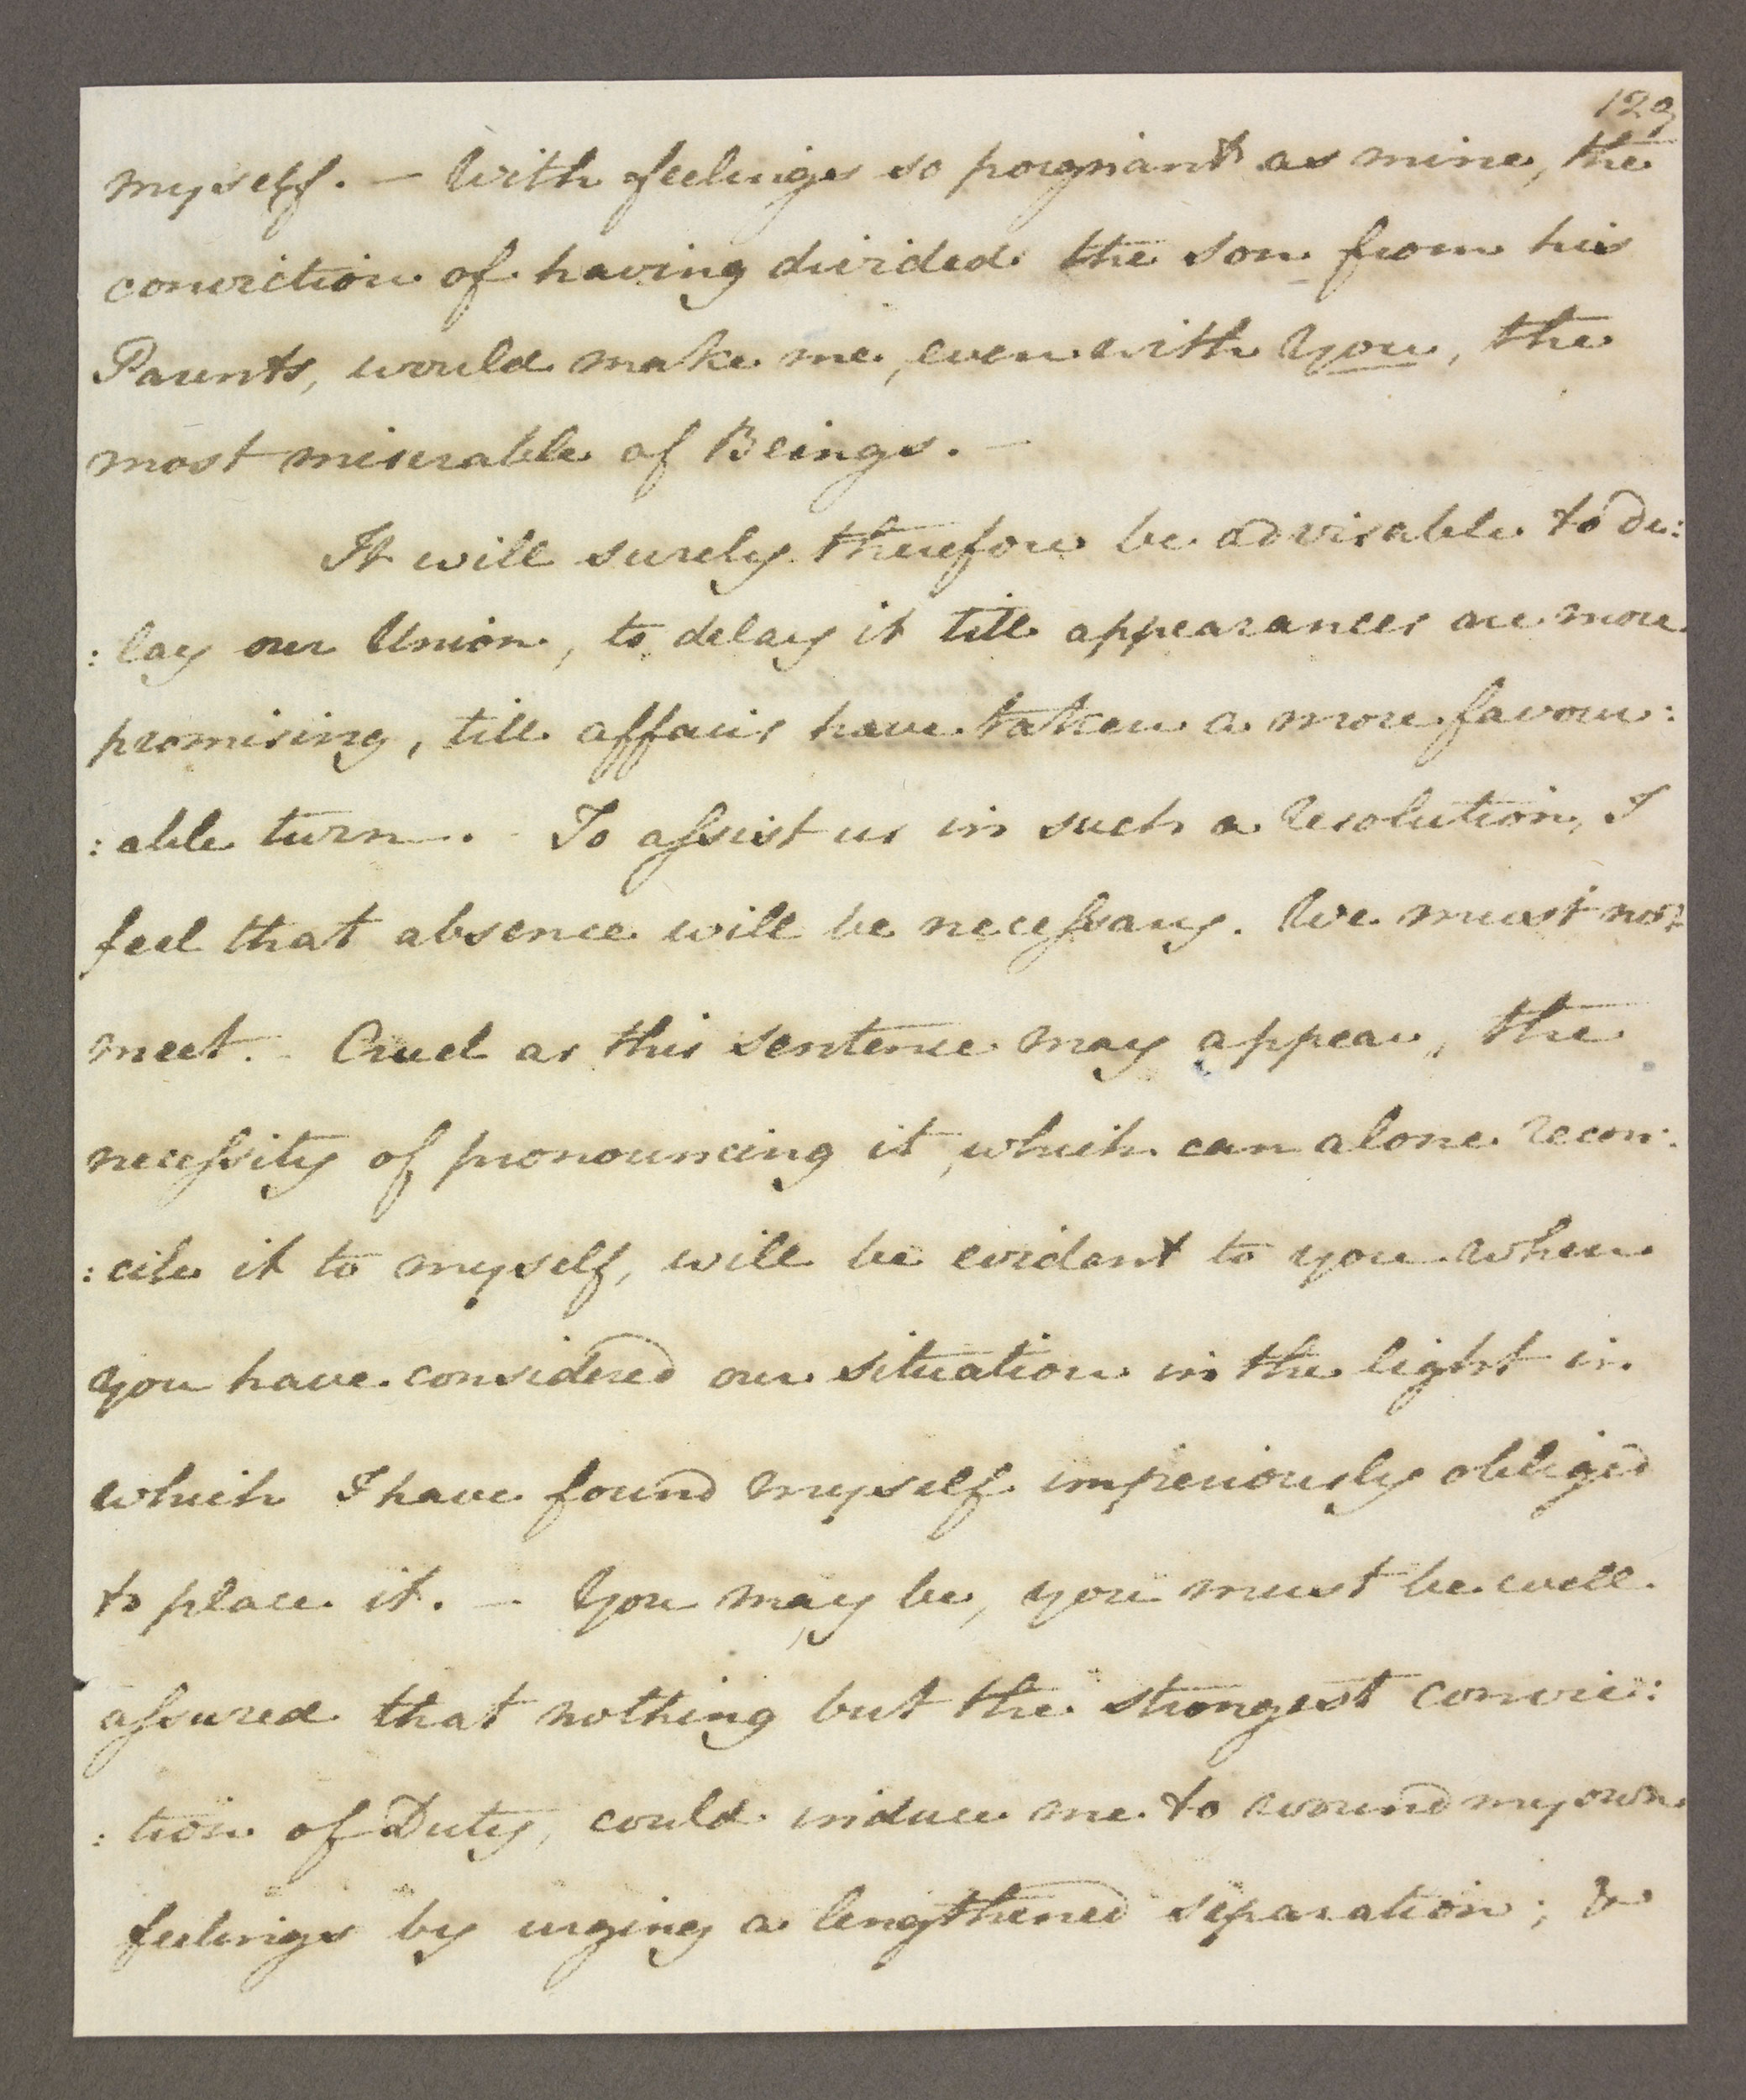 129
myself. — With feelings so poignant as mine, the
conviction of having divided the son from his
Parents, would make me, even with you, the
most miserable of Beings. —
It will surely therefore be advisable to de:
:lay our Union, to delay it till appearances are more
promising, till affairs have taken a more favour:
:able turn. - To aſsist us in such a resolution, I
feel that absence will be neceſsary. We must not
meet. - Cruel as this sentence may appear, the
neceſsity of pronouncing it, which can alone recon:
:cile it to myself, will be evidant to you when
you have considered our situation in the light in
which I have found myself imperiously obliged
to place it. — You may be, you must be well
aſsured that nothing but the strongest convic:
:tion of Duty, could induce me to wound my own
feelings by urging a lengthened separation; &